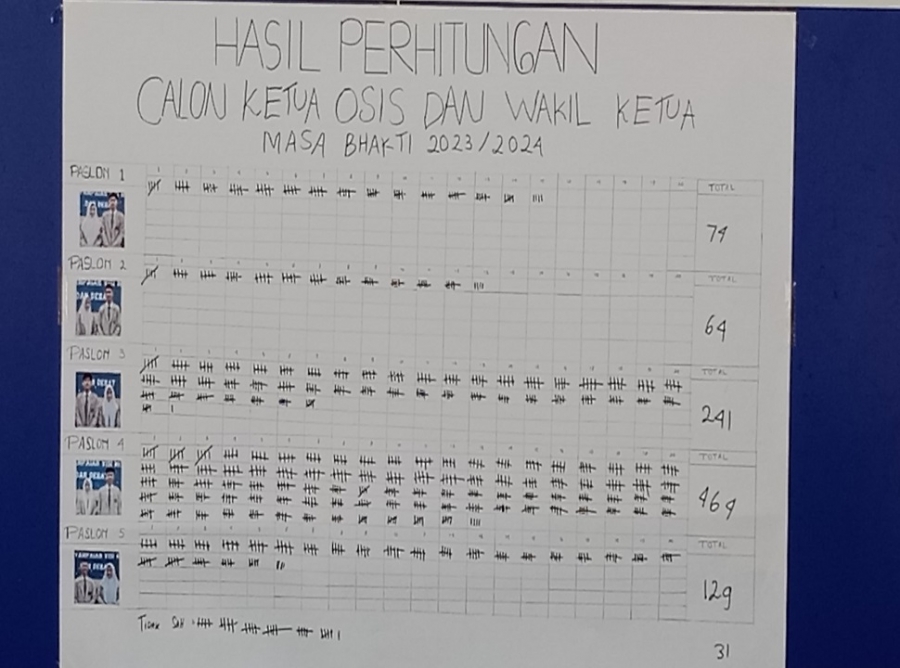 HASIL PERHITUNGAN
CALON KETUA OSIS DAN WAKIL KETUA
MASA BHAKTI 2023/2024
PASLON 1
TOTAL
74
PASLON 2
TOTAL
64
PASLON 3
TOTAL
241
PASLON 4
TOTAL
464
PASLON 5
TOTAL
129
TIDAK SAH :
31